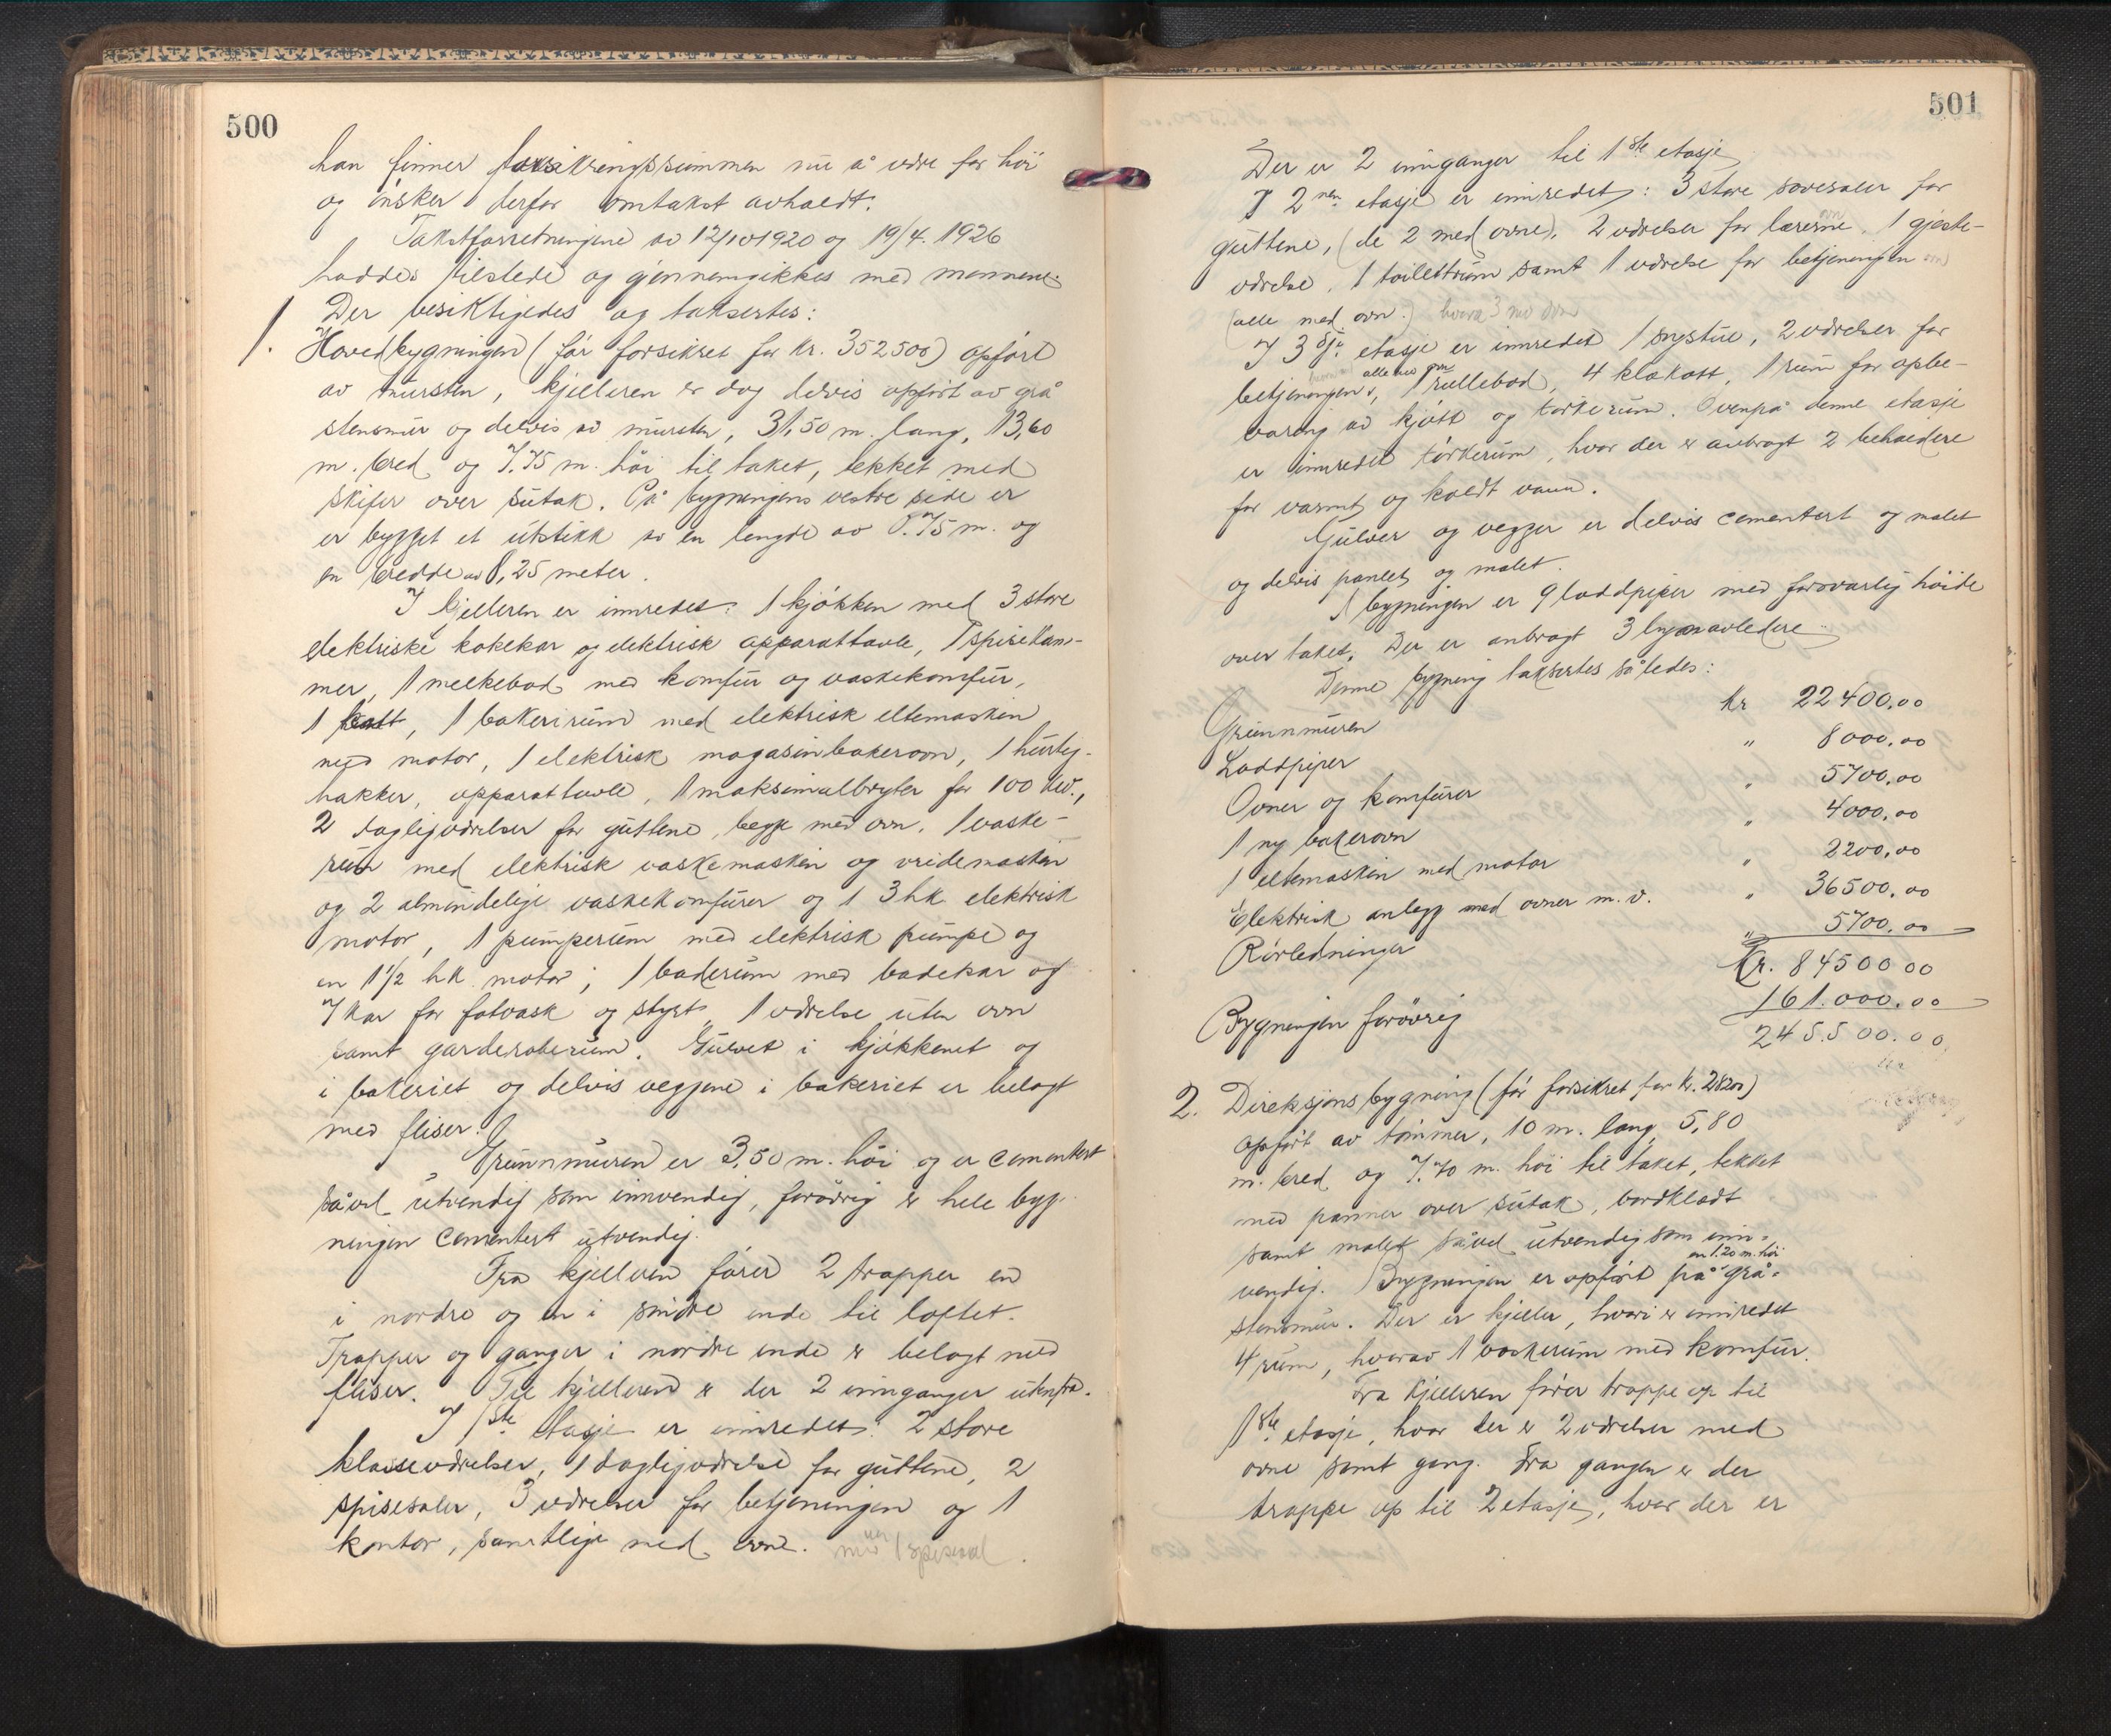 500
han finner forsikringssummen nu å være for høi
og ønsker derfor omtakst avholdt.
Takstforretningene av 12/10 1920 og 19/4. 1926
haddes tilstede og gjennemgikkes med mennene.
Der besiktigedes og taksertes:
1. Hovedbygningen (før forsikret for kr. 352500) opført
av mursten, kjelleren er dog delvis opført av grå
stensmur og delvis av mursten, 31,50 m. lang, 13,60
m. bred og 7.75 m. høi til taket, tekket med
skifer over sutak. På bygningens vestre side er
er bygget et utstikk av en lengde av 0.75 m. og
en bredde av 8,25 meter.
I kjelleren er innredet: 1 kjøkken med 3 store
elektriske kokekar og elektrisk apparattavle, 1 spisekam-
mer, 1 melkebod med komfur og vaskekomfur,
1 kott, 1 bakerirum med elektrisk eltemaskin
med motor, 1 elektrisk magasinbakerovn, 1 hurtig-
hakker, apparattavle, 1 maksimalbryter for 100 kw.,
2 dagligværelser for guttene, begge med ovn, 1 vaske-
rum med elektrisk vaskemaskin og vridemaskin
og 2 almindelige vaskekomfurer og 1 3 hk elektrisk
motor, 1 pumperum med elektrisk pumpe og
en 1 1/2 hk. motor; 1 baderum med badekar og
7 kar for fotvask og styrt, 1 værelse uten ovn
samt garderoberum. Gulvet i kjøkkenet og
i bakeriet og delvis veggene i bakeriet er belagt
med fliser.
Grunnmuren er 3,50 m. høi og er cementert
såvel utvendig som innvendig, forøvrig er hele byg-
ningen cementert utvendig.
Fra kjelleren fører 2 trapper en
i nordre og en i søndre ende til loftet.
Trapper og ganger i nordre ende er belagt med
fliser. Til kjelleren er der 2 innganger utenfra.
I 1ste etasje er innredet: 2 store
klasseværelser, 1 dagligværelse for guttene, 2
spisesaler, 3 værelser for betjeningen og 1
kontor, samtlige med ovne. 1 spisesal
501
Der er 2 innganger til 1ste etasje.
I 2nen etasje er innredet: 3 store sovesaler for
guttene, (de 2 med ovne), 2 værelser for lærerne, 1 gjeste-
værelse, 1 toilettrum samt 1 værelse for betjeningen
(alle med ovn.) hvorav 3 med ovn
I 3dje etasje er innredet 1 systue, 2 værelser for
alle med ovn
betjeningen, 1 rullebod, 4 klækott, 1 rum for opbe-
varing av kjøtt og tørkerum. Ovenpå denne etasje
er innredet tørkerum, hvor der er anbragt 2 beholdere
for varmt og koldt vann.
Gulver og vegger er delvis cementert og malet
og delvis panelt og malet.
I bygningen er 9 loddpiper med forsvarlig høide
over taket. Der er anbragt 3 lynavledere.
Denne bygning taksertes således:
Grunnmuren kr 22400.00
Loddpiper " 8000.00
Ovner og komfurer " 5700.00
1 ny bakerovn " 4000.00
1 eltemaskin med motor " 2200.00
Elektrisk anlegg med ovner m.v. " 36500.00
Rørledninger " 5700.00
Kr. 84500 00
Bygningen forøvrig 161.000.00
245500.00
2. Direksjonsbygning (før forsikret for kr. 28200)
opført av tømmer, 10 m. lang, 5,80
m. bred og 7.70 m. høi til taket, tekket
med panner over sutak, bordklædt
samt malet såvel utvendig som inn-
en 1.20 m. høi
vendig. Bygningen er opført på grå-
stensmur. Der er kjeller, hvori er innredet
4 rum, hvorav 1 vaskerum med komfur.
Fra kjelleren fører trappe op til
1ste etasje, hvor der er 2 værelser med
ovne samt gang. Fra gangen er der
trappe op til 2 etasje, hvor der er